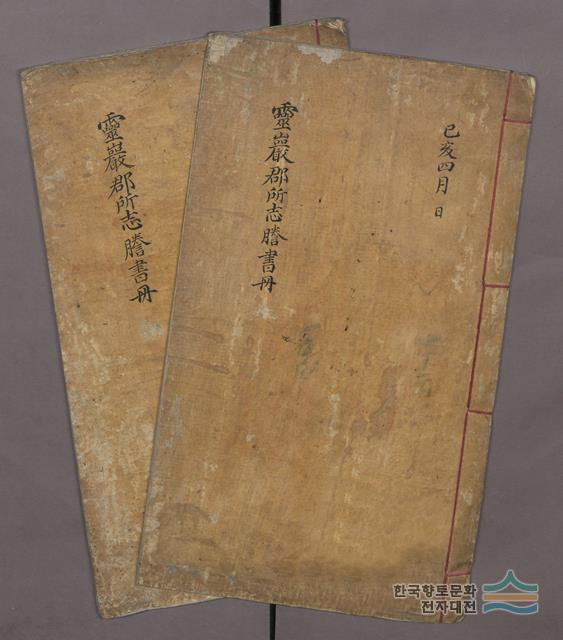 己亥四月 日
靈巖郡所志謄書冊
靈巖郡所志謄書冊
한국향토문화
전자대전